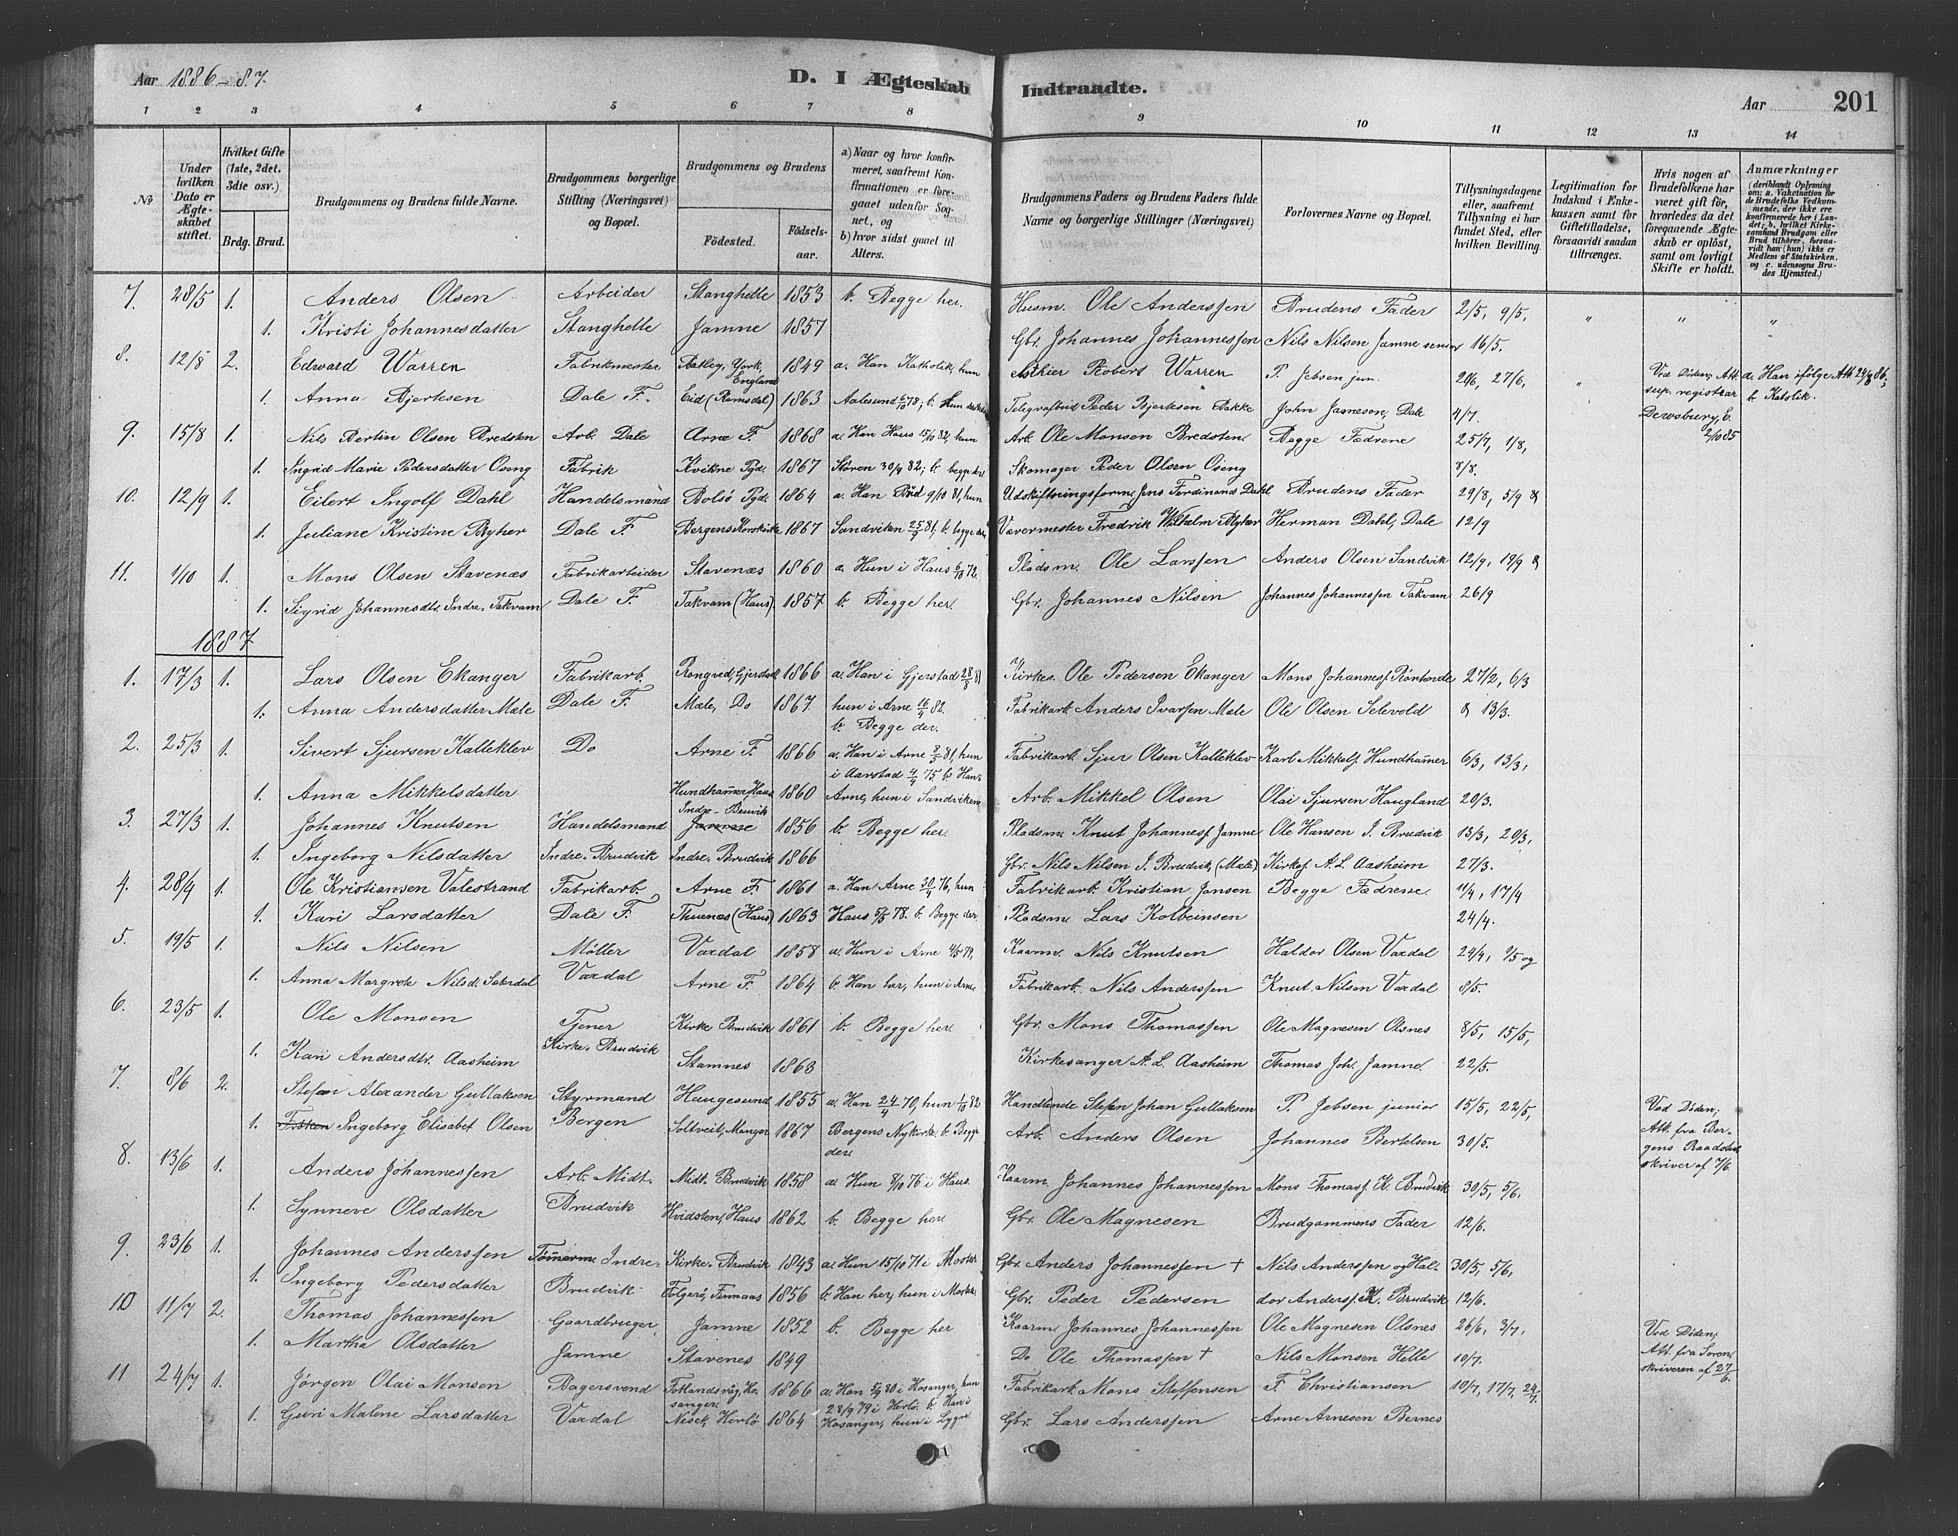 Aar 1886-87. D. I Ægteskab Indtraadte. Aar 201
1 2 3 4 5 6 7 8 9 10 11 12 13 14
№
Under hvilken Dato er Ægteskabet stiftet.
Hvilket Gifte (1ste, 2det. 3die osv.)
Brdg. Brud.
Brudgommens og Brudens fulde Navne.
Brudgommens borgerlige Stilling (Næringsvei) og Bopæl.
Brudgommens og Brudens
Fødested. Fødselsaar.
a) Naar og hvor konfirmeret, saafremt Konfirmationen er foregaaet udenfor Sognet, og
b) hvor sidst gaaet til Alters.
Brudgommens Faders og Brudens Faders fulde Navne og borgerlige Stillinger (Næringsvei)
Forlovernes Navne og Bopæl.
Tillysningsdagene eller, saafremt Tillysning ei har fundet Sted, efter hvilken Bevilling.
Legitimation for Indskud i Enkekassen samt for Giftetilladelse, forsaavidt saadan tiltrænges.
Hvis nogen af Brudefolkene har været gift før, hvorledes da det foregaaende Ægteskab er opløst, samt om lovligt Skifte er holdt.
Anmærkninger (deriblandt Oplysning om: a. Vakcination for de Brudefolks Vedkommende, der ikke ere konfirmerede her i Landet; b. hvilket Kirkesamfund Brudgom eller Brud tilhører, forsaavidt han (hun) ikke er Medlem af Statskirken, og c. udensogns Brudes Hjemsted.)
7. 28/5 1. Anders Olsen Arbeider Stanghelle 1853 b. Begge her. Husm. Ole Anderssen Brudens Fader 2/5, 9/5. " " "
1. Kristi Johannesdatter Stanghelle Jamne 1857 Gbr. Johannes Johannessen Nils Nilsen Jamne senior 16/5.
8. 12/8 2. Edward Warren Fabrikmester Batley, York, England 1849 a. Han Katholik, hun Robert Warren P. Jebsen jun. 27/6, " Ved Døden; Att. sup. registrar Dewsbury, E. 2/10 85 Han ifølge Att 24/3 86, b. Katolik.
1. Anna Bjerksen Dale F. Eid (Romsdal) 1863 Aalesund 6/10 78; b. Hun Telegrafbud Peder Bjerksen Bakke John Jamesen, Dale 4/7.
9. 15/8 1. Nils Bertin Olsen Bredsten Arb. Dale Arne F. 1868 a. Han Haus 15/10 82, hun Arb. Ole Monsen Bredsten Begge Fædrene 25/7, 1/8,
1. Ingrid Marie Pedersdatter Oseng Fabrik Kvikne Pgd. 1867 Støren 30/9 82; b. begge der Skomager Peder Olsen Oseng 8/8.
10. 12/9 1. Eilert Ingolf Dahl Handelsmand Bolsø Pgd. 1864 a. Han Bud 9/10 81, hun Udskiftningsform. Jens Ferdinand Dahl Brudens Fader 29/8, 5/9 &
1. Juliane Kristine Ryher Dale F. Bergens Korskirke 1867 Sandviken 25/9 81, b. begge der Vævermester Fredrik Wilhelm Ryher Herman Dahl, Dale 12/9
11. 1/10 1. Mons Olsen Stavenæs Fabrikarbeider Stavenæs 1860 a. Hun i Haus 6/10 72. Pladsm. Ole Larssen Anders Olsen Sandvik 12/9, 19/9 &
1. Sigrid Johannesdtr. Indre-Takvam Dale F. Takvam (Haus) 1857 b. Begge her. Gbr. Johannes Nilsen Johannes Johannessen Takvam 26/9
1887
1. 17/3 1. Lars Olsen Ekanger Fabrikarb. Rongved, Gjerstad 1866 a. Han i Gjerstad 28/8 81 Kirkes. Ole Pedersen Ekanger Mons Johannes. Rønhovde 27/2, 6/3
1. Anna Andersdatter Mæle Dale F. Mæle, Do 1867. hun i Arne 16/4 82. b. Begge der. Fabrikarb. Anders Ivarsen Mæle Ole Olsen Selevold & 13/3.
2. 25/3 1. Sivert Sjursen Kalleklev Do Arne F. 1866 a. Han i Arne 8/5 81, hun i Aarstad 4/4 75. b. Han- Fabrikarb. Sjur Olsen Kalleklev Karl Mikkels. Hundhammer 6/3, 13/3,
1. Anna Mikkelsdatter Hundhammer Haus 1860 Arne, hun i Sandviken Arb. Mikkel Olsen Olai Sjursen Haugland 20/3.
3. 27/3 1. Johannes Knutsen Handelsmand Indre-Bruvik Jamne 1856 b. Begge her. Pladsm. Knut Johannes. Jamne Ole Hansen I. Brudvik 13/3, 20/3,
1. Ingeborg Nilsdatter Indre-Brudvik Indre-Brudvik 1866 Gbr. Nils Nilsen I. Brudvik (Mæle) Kirkes. A. L. Aasheim 27/3.
4. 28/4 1. Ole Kristiansen Valestrand Fabrikarb. Arne F. 1861 a. Han Arne 30/4 76, hun Fabrikarb. Kristian Jansen Begge Fædrene. 11/4, 17/4
1. Kari Larsdatter Dale F. Thunæs (Haus) 1863 Haus 5/5 78. b. Begge der. Pladsm. Lars Kolbeinsen 24/4.
5. 19/5 1. Nils Nilsen Møller Vaxdal 1858 a. Hun i Arne 4/5 79, Kaarm. Nils Knutsen Haldor Olsen Vaxdal 24/4, 1/5 og
1. Anna Margrete Nilsd. Sækrdal Vaxdal Arne F. 1864 b. Han her, hun i Arne Fabrikarb. Nils Anderssen Knut Nilsen Vaxdal 8/5.
6. 23/5 1. Ole Monsen Tjener Kirke Brudvik 1861 b. Begge her. Gbr. Mons Thomassen Ole Magnesen Olsnes 8/5, 15/5,
1. Kari Andersdtr. Aasheim Kirke-Brudvik Stamnes 1863 Kirkesanger A. L. Aasheim Thomas Joh. Jamne. 22/5.
7. 8/6 2. Stefan Alexander Gullaksen Styrmand Haugesund 1855 a. Han 24/4 70, hun 1/10 82 Handlende Stefan Johan Gullaksen P. Jebsen junior 15/5, 22/5, Ved Døden; Att. fra Bergens Raadstueskriver af 7/6.
1. Ingeborg Elisabet Olsen Bergen Soltveit, Manger 1867 Bergens Nykirke b. Begge der. Arb. Anders Olsen Johannes Bertelsen 30/5.
8. 13/6 1. Anders Johannessen Arb. Midt- Midt. Brudvik 1858 a. Hun 8/10 76 i Haus. Kaarm. Johannes Johannessen Mons Thomass. K. Brudvik 30/5, 5/6.
1. Synneve Olsdatter Brudvik Hvidsten, Haus 1862 b. Begge her. Gbr. Ole Magnesen Brudgommens Fader 12/6.
9. 23/6 1. Johannes Anderssen Tømmerm. Indre- Kirke-Brudvik 1843 a. Hun 15/10 71 i Moster Gbr. Anders Johannessen † Nils Anderssen og Hal- 30/5, 5/6,
1. Ingeborg Pedersdatter Brudvik Folgerø, Finnaas 1856 b. Han her, hun i Moster. Gbr. Peder Pedersen dor Anders. K. Brudvik 12/6.
10 11/7 2. Thomas Johannessen Gaardbruger, Jamne 1852 b. Begge her Kaarm. Johannes Johannessen Ole Magnesen Olsnes 26/6, 3/7, Ved Døden; Att. fra Sorenskriveren af 27/6.
1. Martha Olsdatter Jamne Stavenes 1849 Do Ole Thomassen † Nils Monsen Helle 10/7.
11 24/7 1. Jørgen Olai Monsen Bagersvend Totlandsvåg, Hosanger. 1866 a. Han 5/9 80 i Hosanger, hun 28/9 79 i Herlø. b. Han i Fabrikarb. Mons Steffensen F. Christiansen 10/7, 17/7, 24/7.
1. Guri Malene Larsdatter Vaxdal Herlø 1864 Hosanger, hun i Lygre Gbr. Lars Anderssen Arne Arnesen Bernes